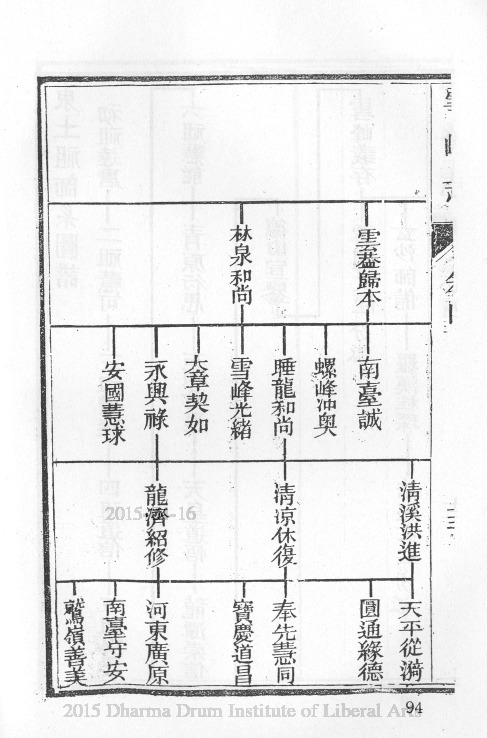 雲蓋歸本
林泉和尚
南臺誠
螺峰沖奧
睡龍和尚
雪峰光緒
大章契如
永興祿
安國慧球
清溪洪進
清涼休復
龍濟紹修
天平從漪
圓通緣德
奉先慧同
寶慶道昌
河東廣原
南臺守安
鷲嶺善美
94
2015 Dharma Drum Institute of Liberal Arts